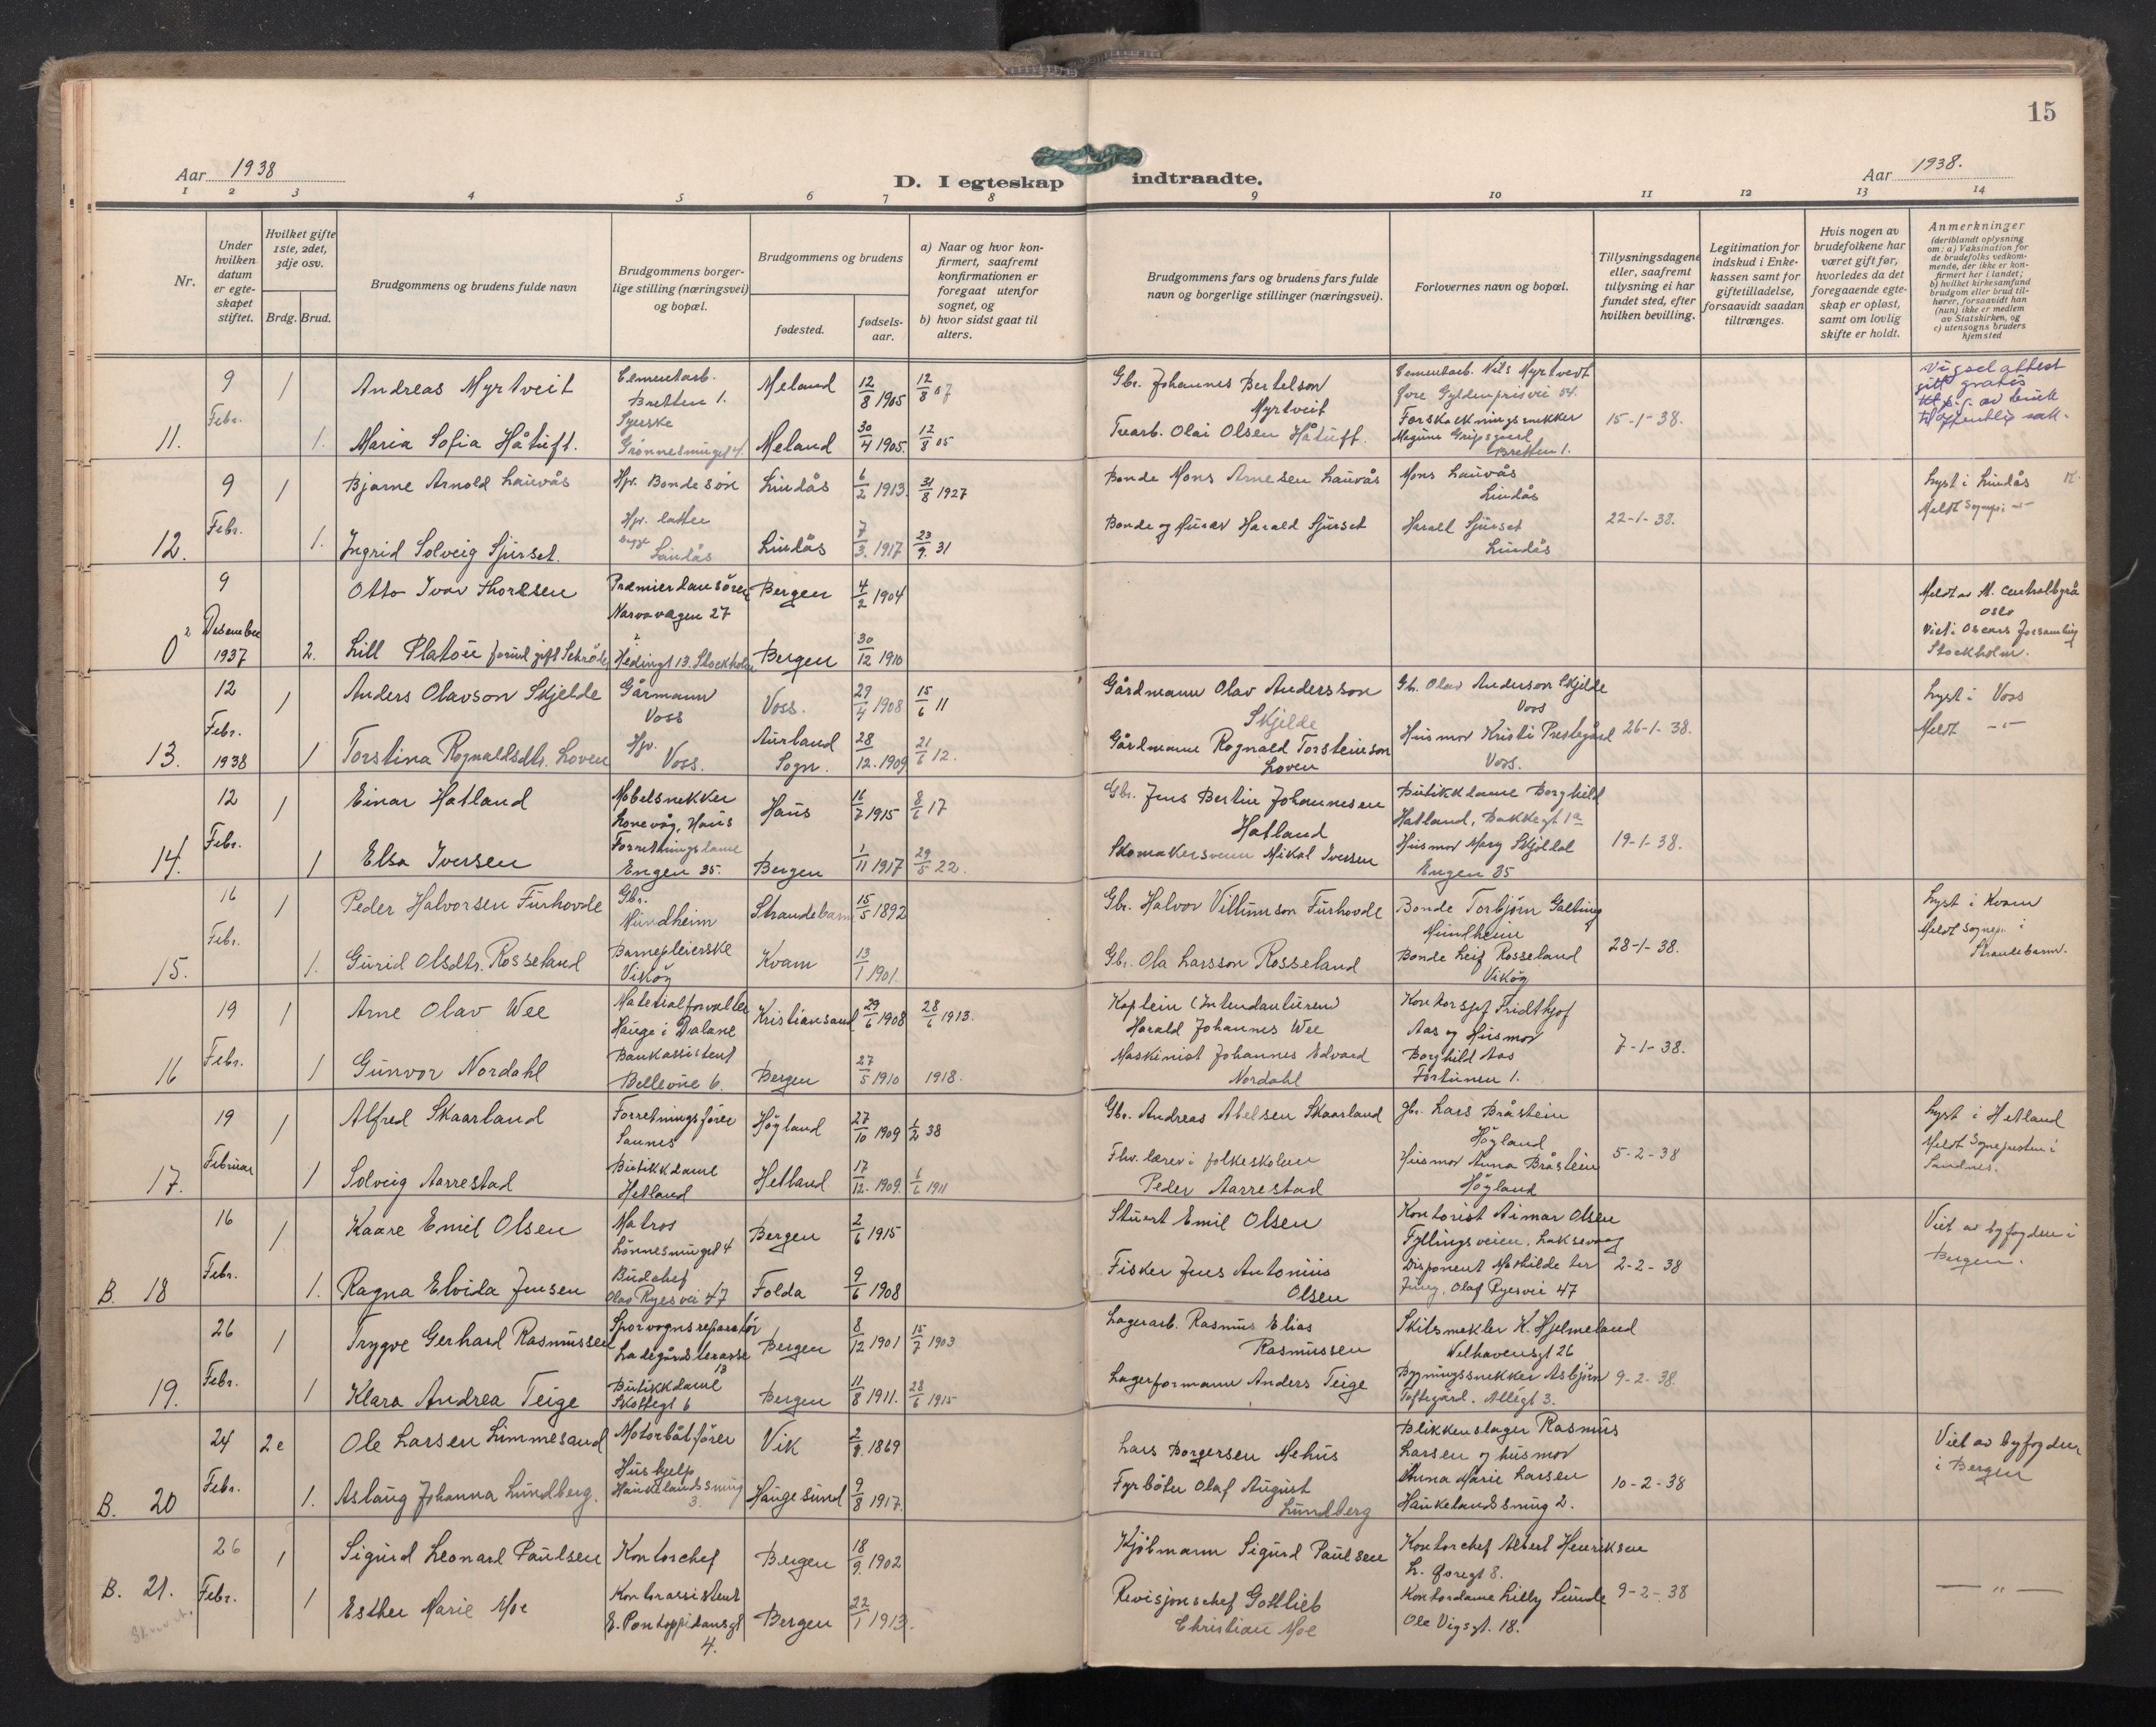 15
Aar 1938
D. I egteskap indtraadte.
Aar 1938.
1 2 3 4 5 6 7 8 9 10 11 12 13 14
Nr.
Under hvilken datum er egte-skapet stiftet.
Hvilket gifte 1ste, 2det, 3dje osv.
Brdg. Brud.
Brudgommens og brudens fulde navn
Brudgommens borger-lige stilling (næringsvei) og bopæl.
Brudgommens og brudens
fødested.
fødsels-aar.
a) Naar og hvor kon-firmert, saafremt konfirmationen er foregaat utenfor sognet, og
b) hvor sidst gaat til alters.
Brudgommens fars og brudens fars fulde navn og borgerlige stillinger (næringsvei).
Forlovernes navn og bopæl.
Tillysningsdagene eller, saafremt tillysning ei har fundet sted, efter hvilken bevilling.
Legitimation for indskud i Enke-kassen samt for giftetilladelse, forsaavidt saadan tiltrænges.
Hvis nogen av brudefolkene har været gift før, hvorledes da det foregaaende egte-skap er opløst, samt om lovlig skifte er holdt.
Anmerkninger
(deriblandt oplysning om: a) Vaksination for de brudefolks vedkom-mende, der ikke er kon-firmert her i landet; b) hvilket kirkesamfund brudgom eller brud til-hører, forsaavidt han (hun) ikke er medlem av Statskirken, og c) utensogns bruders hjemsted
11. 9 Febr. 1 Andreas Myrtveit Cementarb. Bretten 1. Meland 12/8 1905 12/8 07 Gbr. Johannes Bertelson Myrtveit Cementarb. Nils Myrtvedt Øvre Gyldenprisvei 54.
1. Maria Sofia Håtuft. Syerske Grønnesmuget 4. Meland 30/4 1905. 12/8 05 Trearb. Olai Olsen Håtuft. Magnus Gripsgaard Bretten 1. 15-1-38.
Vigselattest gitt gratis
12. 9 Febr. 1 Bjarne Arnold Lauvås Hjv. Bondesøn Lindås 6/2 1913. 31/8 1927 Bonde Mons Arnesen Lauvås Mons Lauvås Lindås
1. Ingrid Solveig Sjurset. Hjv. datter begge Lindås Lindås 7/3. 1917 23/9. 31 Bonde og Murer Harald Sjurset Harald Sjurset Lindås 22-1-38.
Lyst i Lindås
Meldt Sognepr. -"-
0² 9 Desember 1937 Otto Ivar Thoresen Premierdansören Narvavägen 27 Bergen 4/2 1904
2. Lill Platou forrul gift Schröder Hedingt 13. Stockholm Bergen 30/12 1910
Meldt av St. Centralbyrå Oslo
Viet i Oscars forsamling Stockholm.
13. 12 Febr. 1938 1 Anders Olavson Skjelde Gårmann Voss Voss. 29/4 1908 15/6 11 Gårdmann Olav Andersson Skjelde Gb. Olav Anderson Skjelde Voss
1 Torstina Rognaldsdtr. Loven Hjv. Voss. Aurland Sogn. 28/12. 1909 21/6 12. Gårdmann Rognald Torsteinson Loven Husmor Kristi Prestegård Voss. 26-1-38.
Lyst i Voss
Meldt -"-
14. 12 Febr. 1 Einar Hatland Møbelsnekker Lonevåg, Haus Haus 16/7 1915 8/6 17 Gbr. Jens Bertin Johannesen Hatland Butikkdame Borghild Hatland, Bakkegt 1a
1 Elsa Iversen Forretningsdame Engen 35. Bergen 1/11 1917 29/5 22. Skomakersvenn Mikal Iversen Husmor Mary Skjöldal Engen 35 19-1-38.
15. 16 Febr. 1 Peder Halvorsen Furhovde Gbr. Mundheim Strandebarm 15/5 1892 Gbr. Halvor Villumson Furhovde Bonde Torbjørn Galtung Mundheim
1. Gurid Olsdtr. Rosseland Barnepleierske Vikøy Kvam 13/1 1901. Gbr. Ola Larsson Rosseland Bonde Leif Rosseland Vikøy 28-1-38.
Lyst i Kvam
Meldt Sognepr. i Strandebarm.
16 19 Febr. 1 Arne Olav Wee Materialforvalter Hauge i Dalane Kristiansand 29/6 1908 28/6 1913. Kaptein (Intendanturen) Harald Johannes Wee Kontorsjef Fridthjof Aas og Husmor Borghild Aas Fortunen 1.
1 Gunvor Nordahl Bankassistent Bellevue 6. Bergen 27/5 1910 1918. Maskinist Johannes Edvard Nordahl 7-1-38.
17. 19 Februar 1 Alfred Skaarland Forretningsfører Sannes Høyland 27/10 1909 1/2 38 Gbr. Andreas Abelsen Skaarland Gbr. Lars Bråstein Høyland
1 Solveig Aarrestad Butikkdame Hetland Hetland 17/12. 1909. 1/6 1911 Fhv. lærer i folkeskolen Peder Aarrestad Husmor Anna Bråstein Høyland 5-2-38
Lyst i Hetland
Meldt Sognepresten i Sandnes.
B. 18 16 Febr. 1 Kaare Emil Olsen Matros Lønnesmuget 4 Bergen 2/6 1915 Stuert Emil Olsen Kontorist Aimar Olsen Fyllingsveien, Laksevaag
1. Ragna Elvida Jensen Budchef Olav Ryesvei 47 Folda 9/6 1908 Fisker Jens Antonius Olsen Disponent Mathilde ter Jung, Olaf Ryesvei 47 2-2-38
Viet av byfogden i Bergen.
19. 26 Febr. 1 Trygve Gerhard Rasmussen Sporvognsreparatør Ladegårdsterasse 13 Bergen 8/12 1901 15/7 1903 Lagerarb. Rasmus Elias Rasmussen Skibsmekler K. Hjelmeland Welhavensgt 26
1 Klara Andrea Teige Butikkdame Skottegt 6 Bergen 11/8 1911. 28/6 1915 Lagerformann Anders Teige Bygningssnekker Asbjørn Toftegård. Allégt 3. 9-2-38.
B. 20 24 Febr. 2e Ole Larsen Limmesand Motorbåtfører Vik 2/9. 1869 Lars Borgersen Mehus Blikkenslager Rasmus Larsen og husmor Anna Marie Larsen Haukelandssmug 2.
1. Aslaug Johanna Lundberg. Hushjelp Haukelandssmug 3. Haugesund 9/8 1917. Fyrbøter Olaf August Lundberg 10-2-38
Viet av byfogden i Bergen
B. 21. 26 Febr. 1 Sigurd Leonard Paulsen Kontorchef Bergen 18/9. 1902 Kjøbmann Sigurd Paulsen Kontorchef Albert Henriksen
1 Esther Marie Moe Kontorassistent E. Pontoppidansgt 4. Bergen 22/1 1913. Revisjonschef Gottlieb Christian Moe Kontordame Lilly Sunde Ole Vigsgt. 18. 9-2-38
— " —